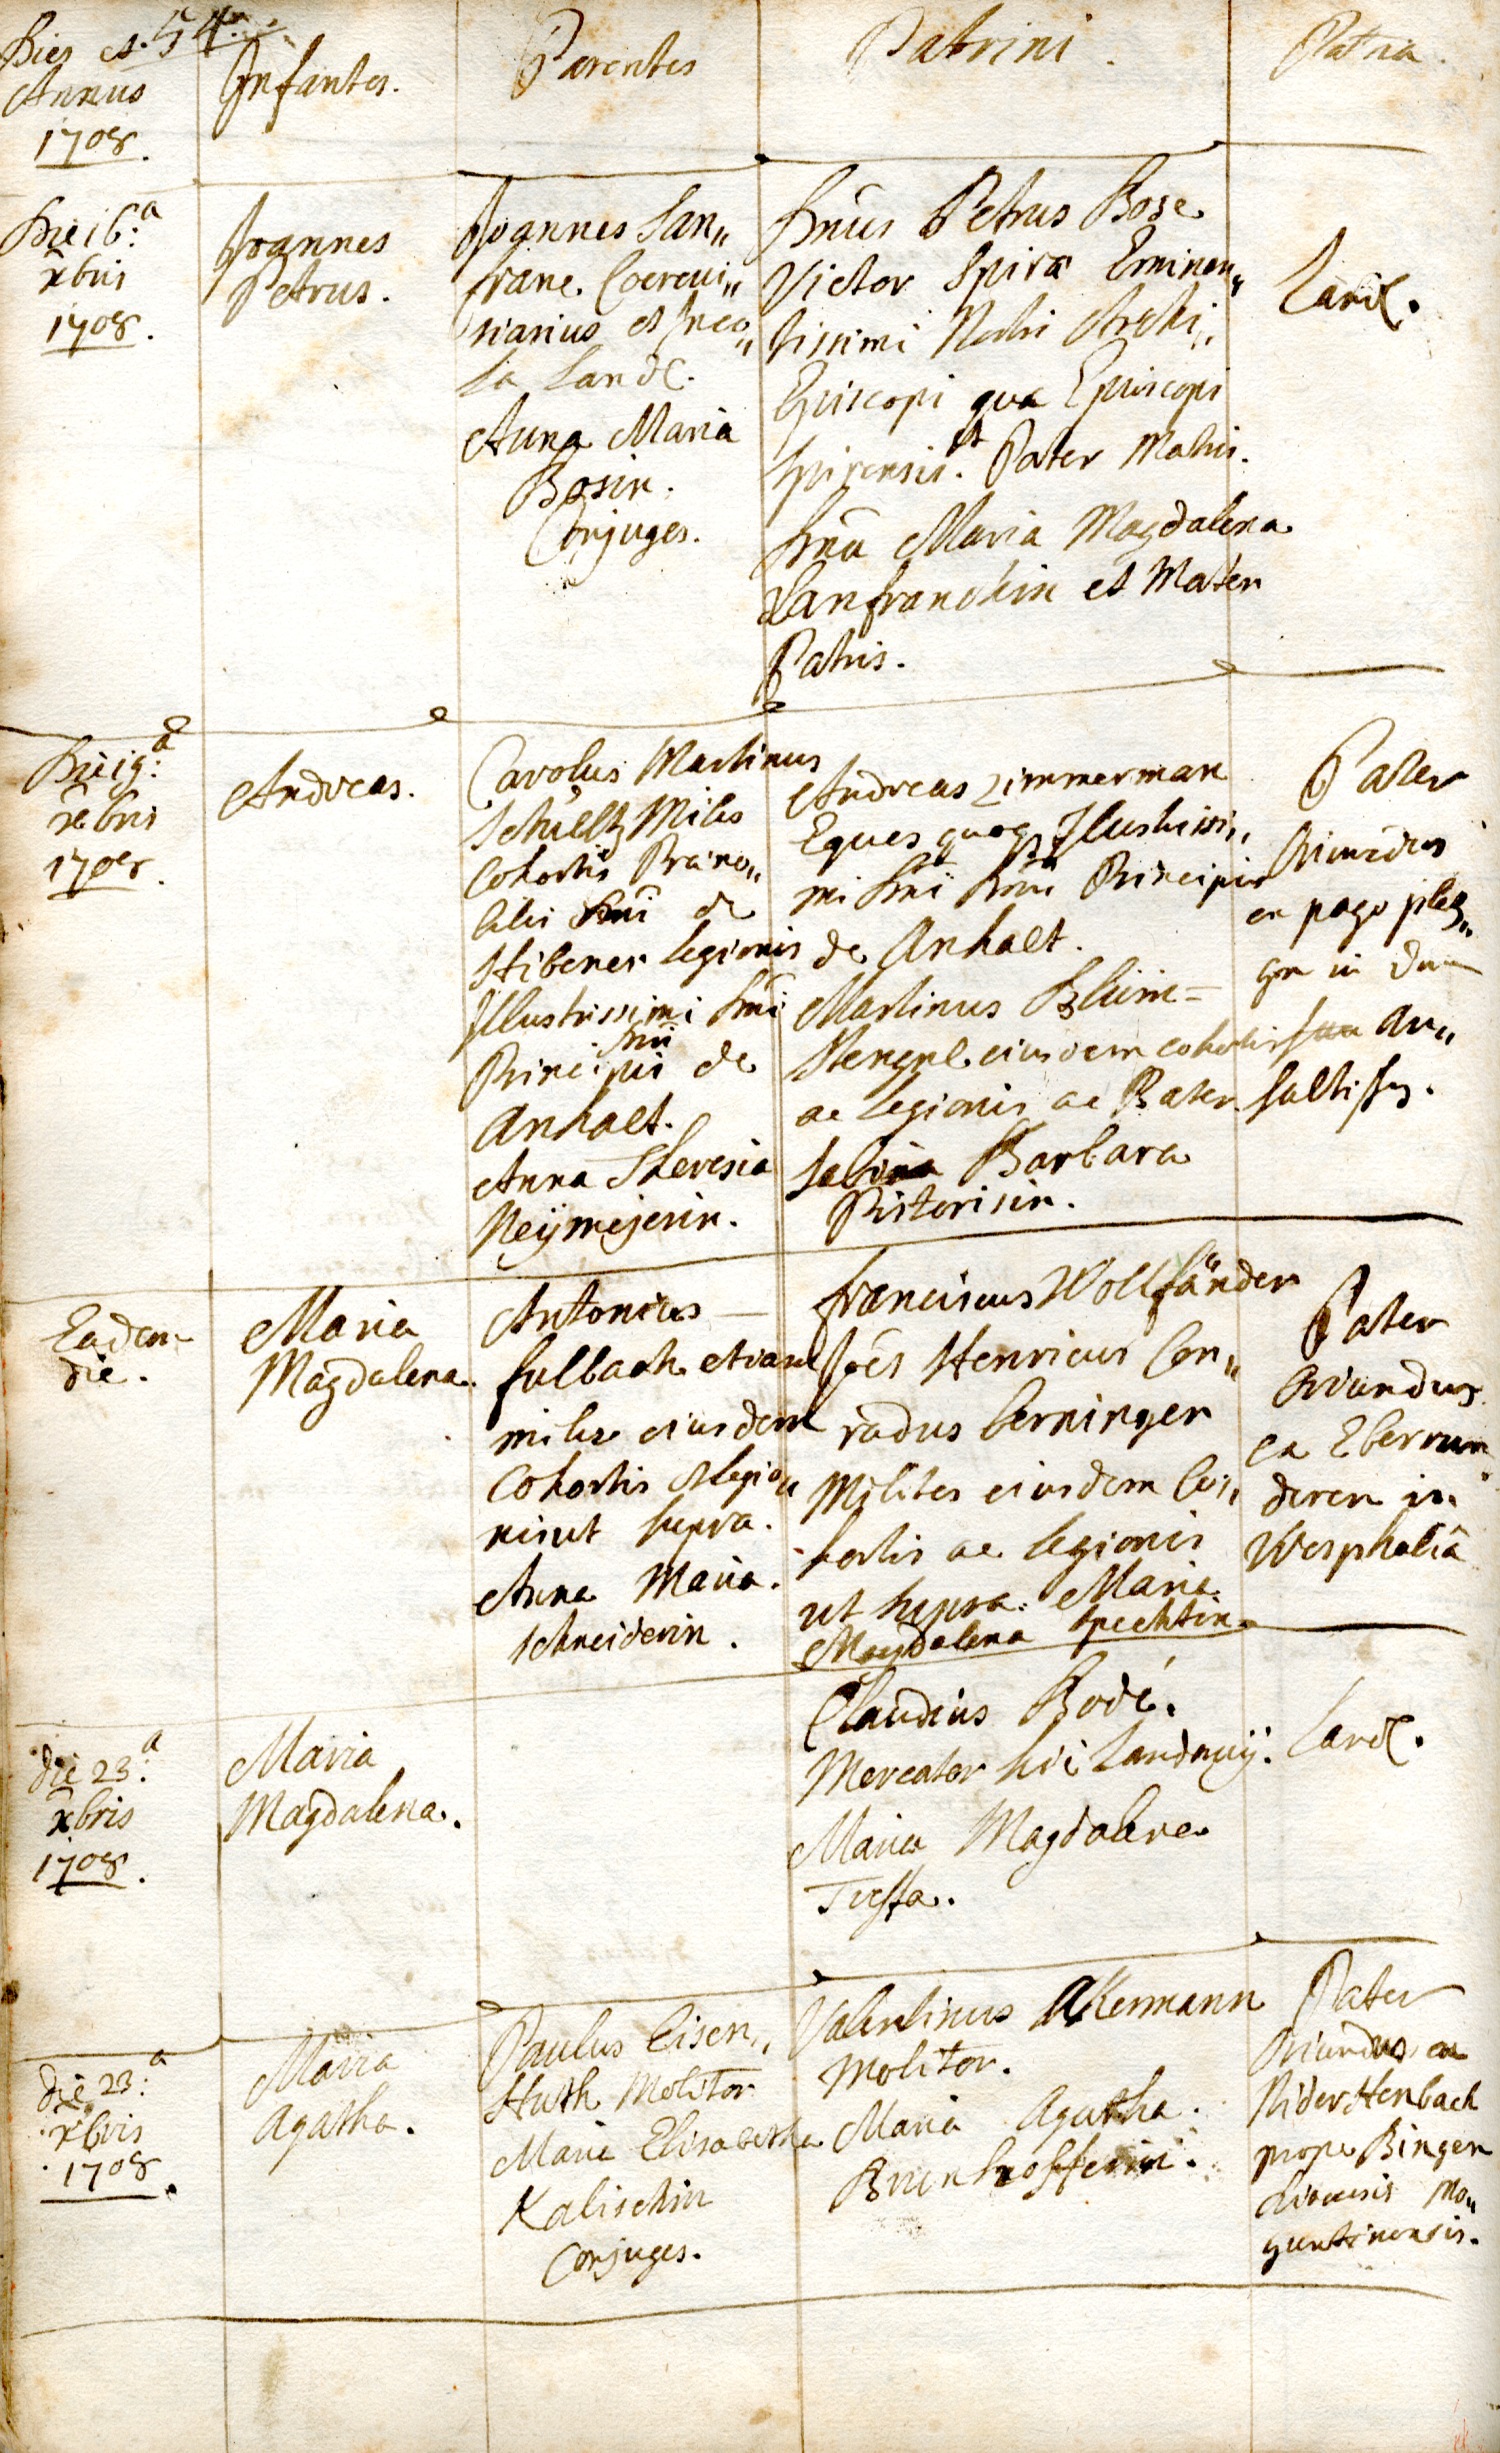 Dies et 54.
Annus
1708.
Infantes.
Parentes
Patrini.
Patria.
Die 16.a
xbris
1708.
Joannes
Petrus.
Joannes Lan„
franc. Cerevi„
siarius et Inco„
la Land.
Anna Maria
Bosin.
Conjuges.
Dnus Petrus Bose
Victor Spirae Eminen„
tissimi Nostri Archi„
Episcopi qua Episcopi
Spirensis. et Pater Matris.
Dna Maria Magdalena
Lanfranchin et Mater
Patris.
Land.
Die 19.a
xbris
1708.
Andreas.
Carolus Martinus
Schultz Miles
Cohortis Praeno„
bilis Dni de
Stibener legionis
Illustrissimi Dni
Dni
Principis de
Anhalt.
Anna Theresia
Neymejerin.
Andreas Zimmerman
Eques quoq Illustrissi„
mi Dni Dni Principis
de Anhalt.
Martinus Blüm=
Stengel eiusdem cohortis
ac legionis ac Pater.
Sabina Barbara
Pistorisin.
Pater
Oriundus
ex pago
in
An„
Eadem
die.
Maria
Magdalena.
Antonius
fulbach etiam
miles eiusdem
Cohortis et legio„
nis ut supra.
Anna Maria.
Schneiderin.
franciscus Wollfänder
Joes Henricus Con„
radus berninger
Milites eiusdem Co„
hortis ac legionis
ut supra. Maria
Magdalena Spechtin.
Pater
Oriundus
ex Eberrun
deren in
Wesphaliâ
die 23.a
xbris
1708.
Maria
Magdalena.
Claudius Bodé.
Mercator hic Landavij.
Maria Magdalena
Land.
die 23.a
xbris
1708.
Maria
Agatha.
Paulus Eisen„
Huth Molitor
Maria Elisabetha
Kalischin
Conjuges.
Valentinus Akermann
Molitor.
Maria Agatha.
Brunhofferin.
Pater
Oriundus ex
Nider Henbach
prope Bingen
dioecesis Mo„
guntinensis.